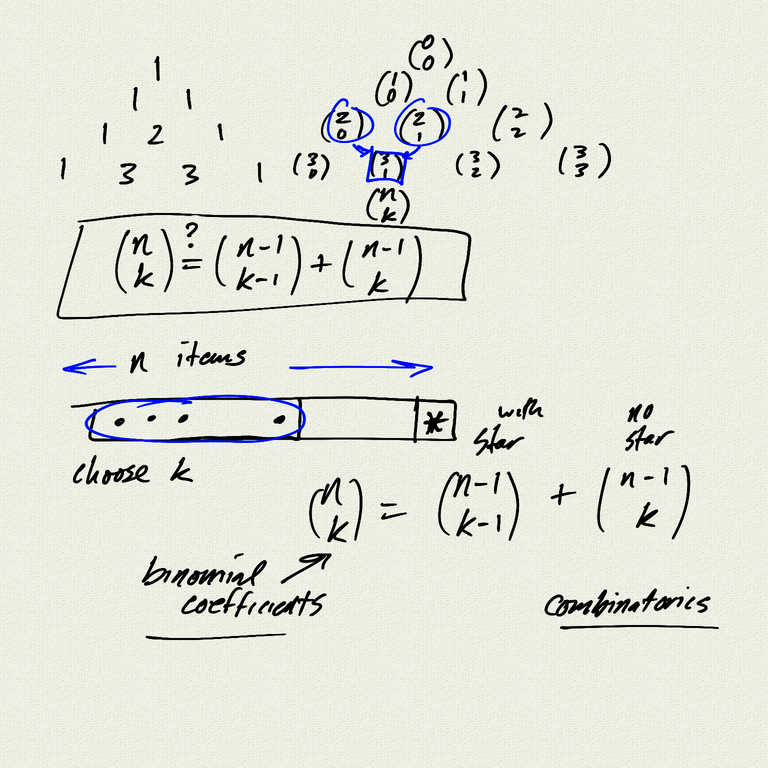 1
1 1
1 2 1
1 3 3 1
(0 0)
(1 0) (1 1)
(2 0) (2 1) (2 2)
(3 0) (3 1) (3 2) (3 3)
(n k)
(n k) ?= (n-1 k-1) + (n-1 k)
n items
*
choose k
with star
no star
(n k) = (n-1 k-1) + (n-1 k)
binomial
coefficients
combinatorics